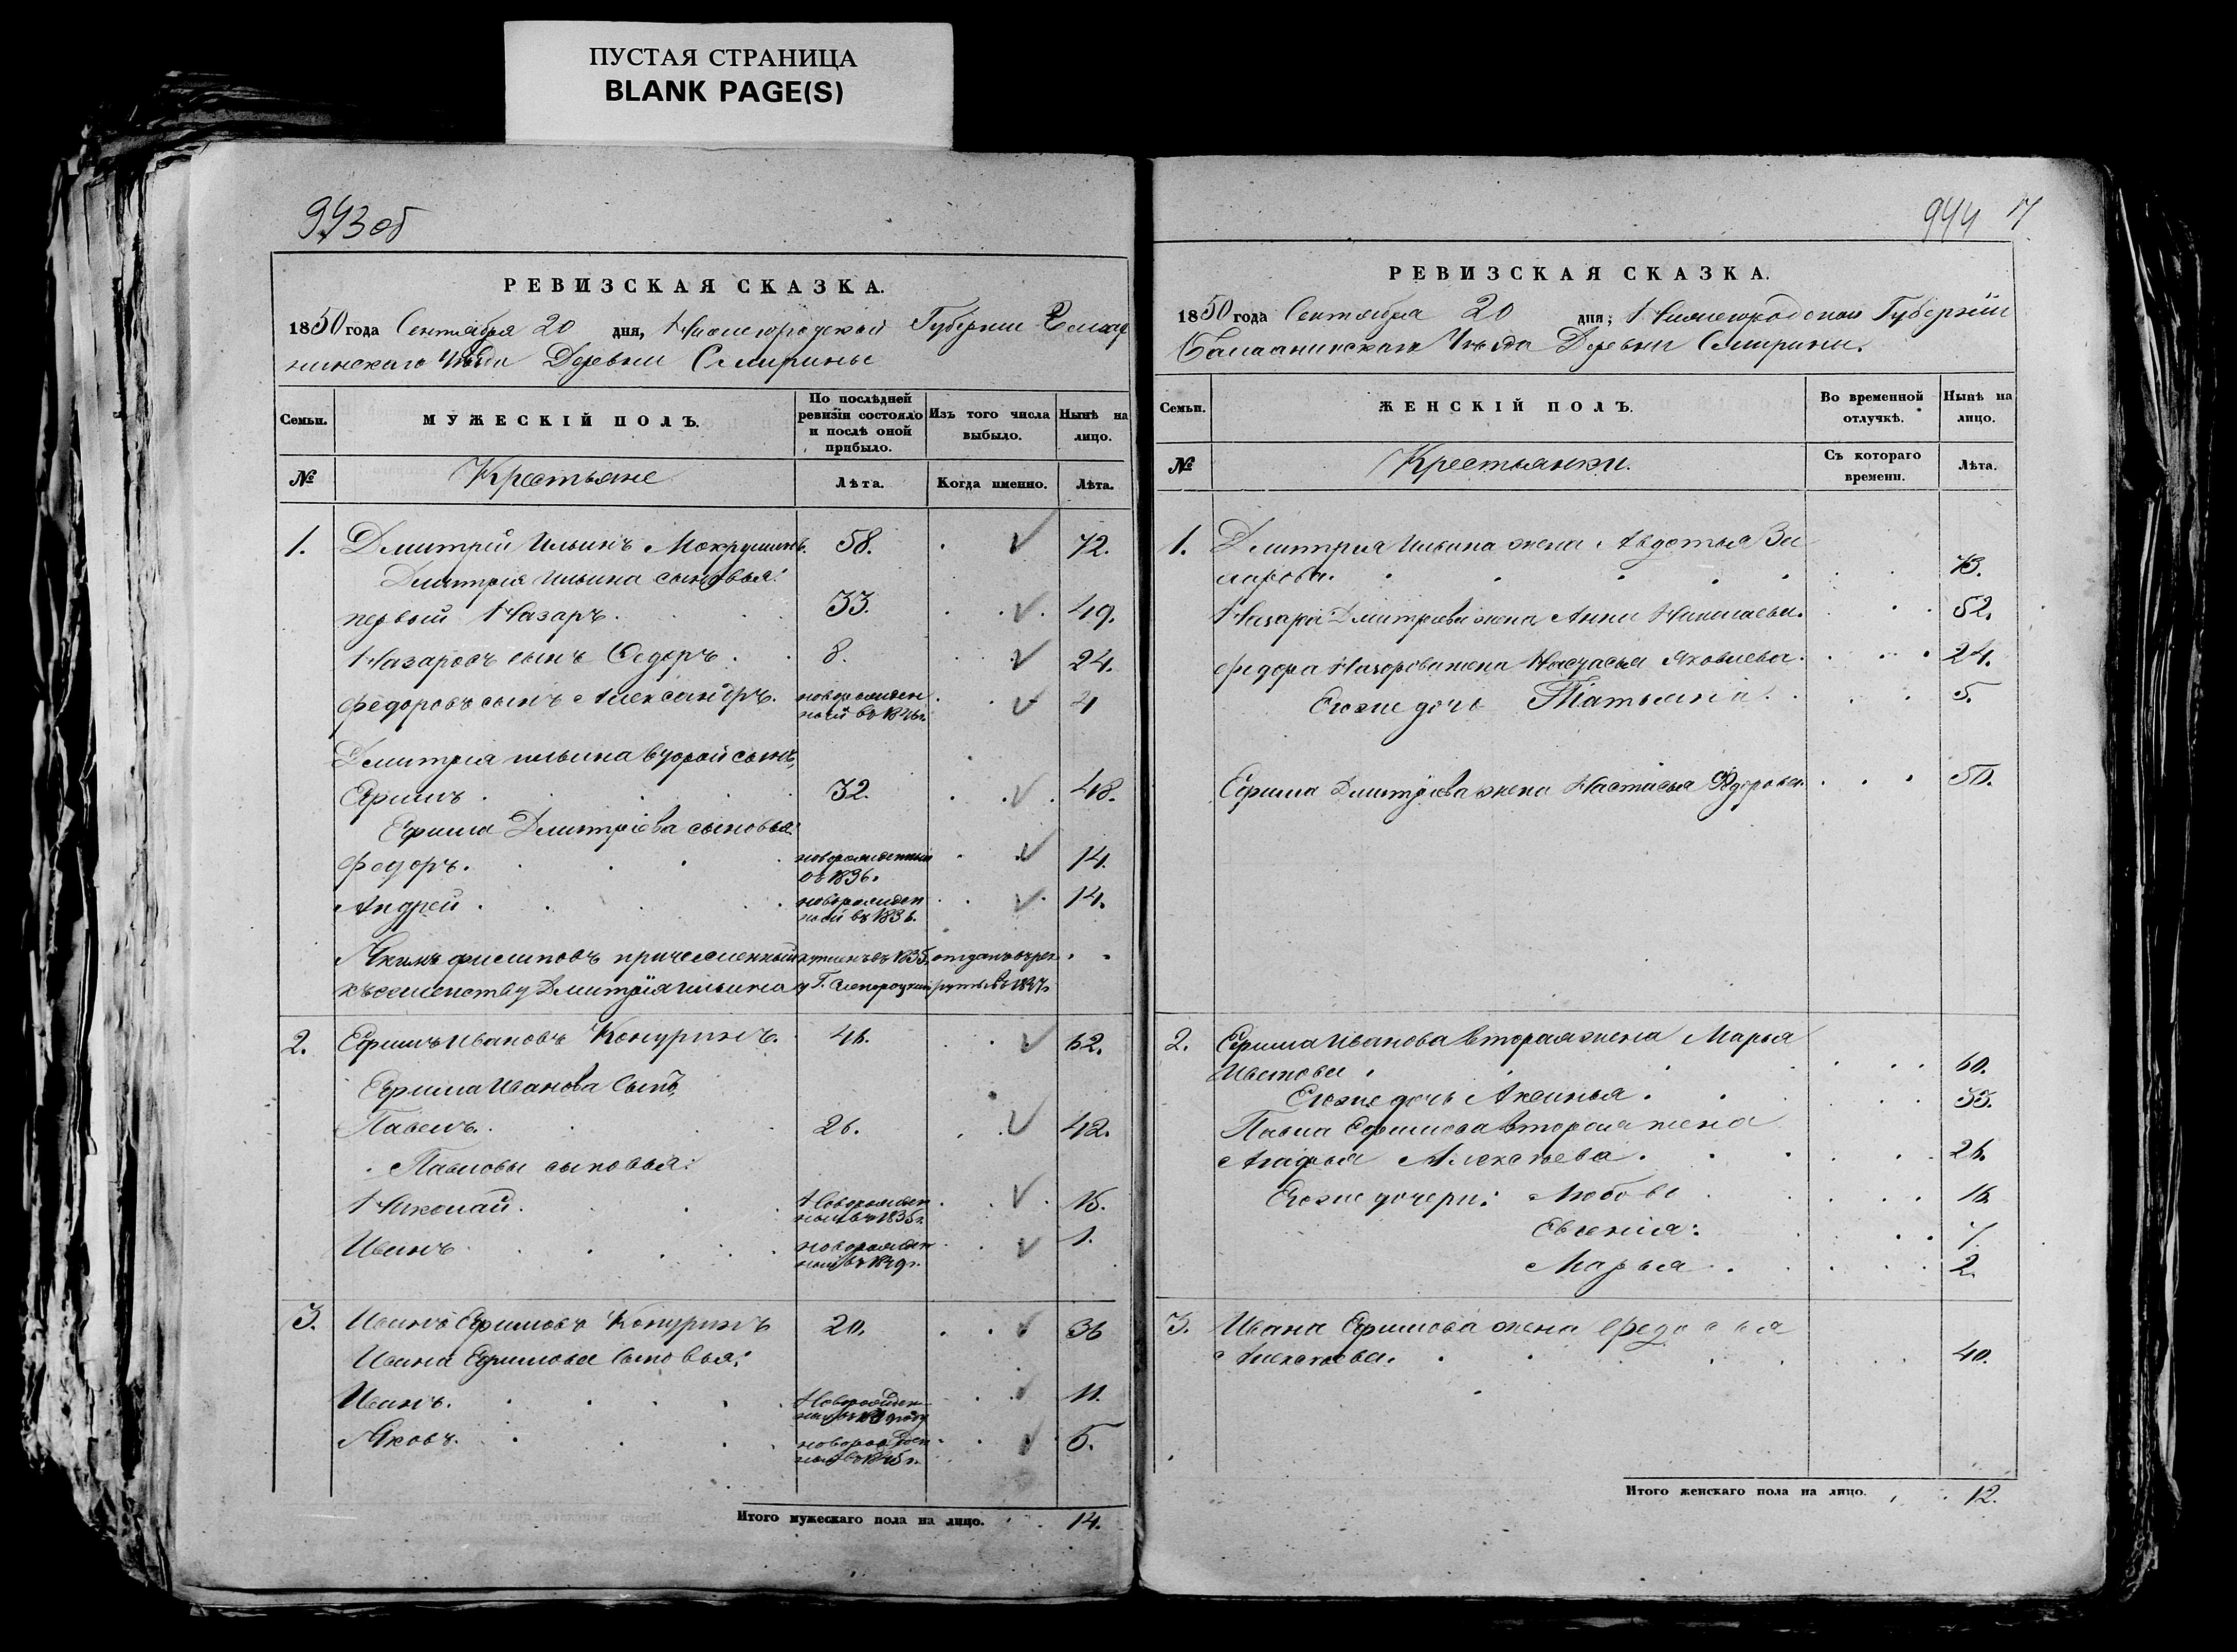 ПУСТАЯ СТРАНИЦА
BLANK PAGE(S)
943 об
РЕВИЗСКАЯ СКАЗКА.
1850 года Сентября 20 дня, Нижегородской Губернии Балах
нинскаго Уѣзда Деревни
Семьи.
МУЖЕСКІЙ ПОЛЪ.
По послѣдней ревизіи состояло и послѣ оной прибыло.
Изъ того числа выбыло.
Нынѣ на лицо.
№
Крестьяне
Лѣта.
Когда именно.
Лѣта.
1. Дмитрій Ильинъ Мокрушинъ. 58. 72.
Дмитрія Ильина сыновья:
первый Назаръ. 33. 49.
Назаровъ сынъ Федоръ. 8. 24.
Федоровъ сынъ Александръ. новорожден 4
ной въ 1846г.
Дмитрія Ильина второй сынъ,
Ефимъ. 32. 48.
Ефима Дмитріева сыновья:
Федоръ. новорожденный 14.
въ 1836.
Андрей. новорожден 14.
ной въ 1836.
Якимъ Филиповъ причисленный купленъ въ 1835. отданъ въ рек
къ семейству Дмитрія Ильина у Г. руты въ 1847г
2. Ефимъ Ивановъ Конуринъ. 46. 62.
Ефима Иванова Сынъ,
Павелъ. 26. 42.
Павловы сыновья:
Николай. Новорожден 15.
ной въ 1835г.
Иванъ. новорожден 1.
ной въ 1849г.
3. Иванъ Ефимовъ Конуринъ 20. 36
Ивана Ефимова сыновья:
Иванъ. Новорожден 11.
ной въ 1839 году
Яковъ. новорожден 5.
ной въ 1845г.
Итого мужескаго пола на лицо. 14.
944 17
РЕВИЗСКАЯ СКАЗКА.
1850 года Сентября 20 дня, Нижегородской Губерніи
Балахнинскаго Уѣзда Деревни
Семьи.
ЖЕНСКІЙ ПОЛЪ.
Во временной отлучкѣ.
Нынѣ на лицо.
№
Крестьянки.
Съ котораго времени.
Лѣта.
1. Дмитрія Ильина жена Авдотья За
харова. 73.
Назара Дмитріева жена Анна Николаева. 52.
Федора Назарова жена Настасья Яковлева. 24.
Егоже дочь Татьяна. 5.
Ефима Дмитріева жена Настасья Федорова. 50.
2. Ефима Иванова вторая жена Марья
60.
Егоже дочь Аксинья. 35.
Павла Ефимова вторая жена
Агафья Алексѣева. 26.
Егоже дочери: Любовь 16.
Евгенія: 7
Марья. 2.
3. Ивана Ефимова жена Федосья
Алексѣева. 40.
Итого женскаго пола на лицо. 12.